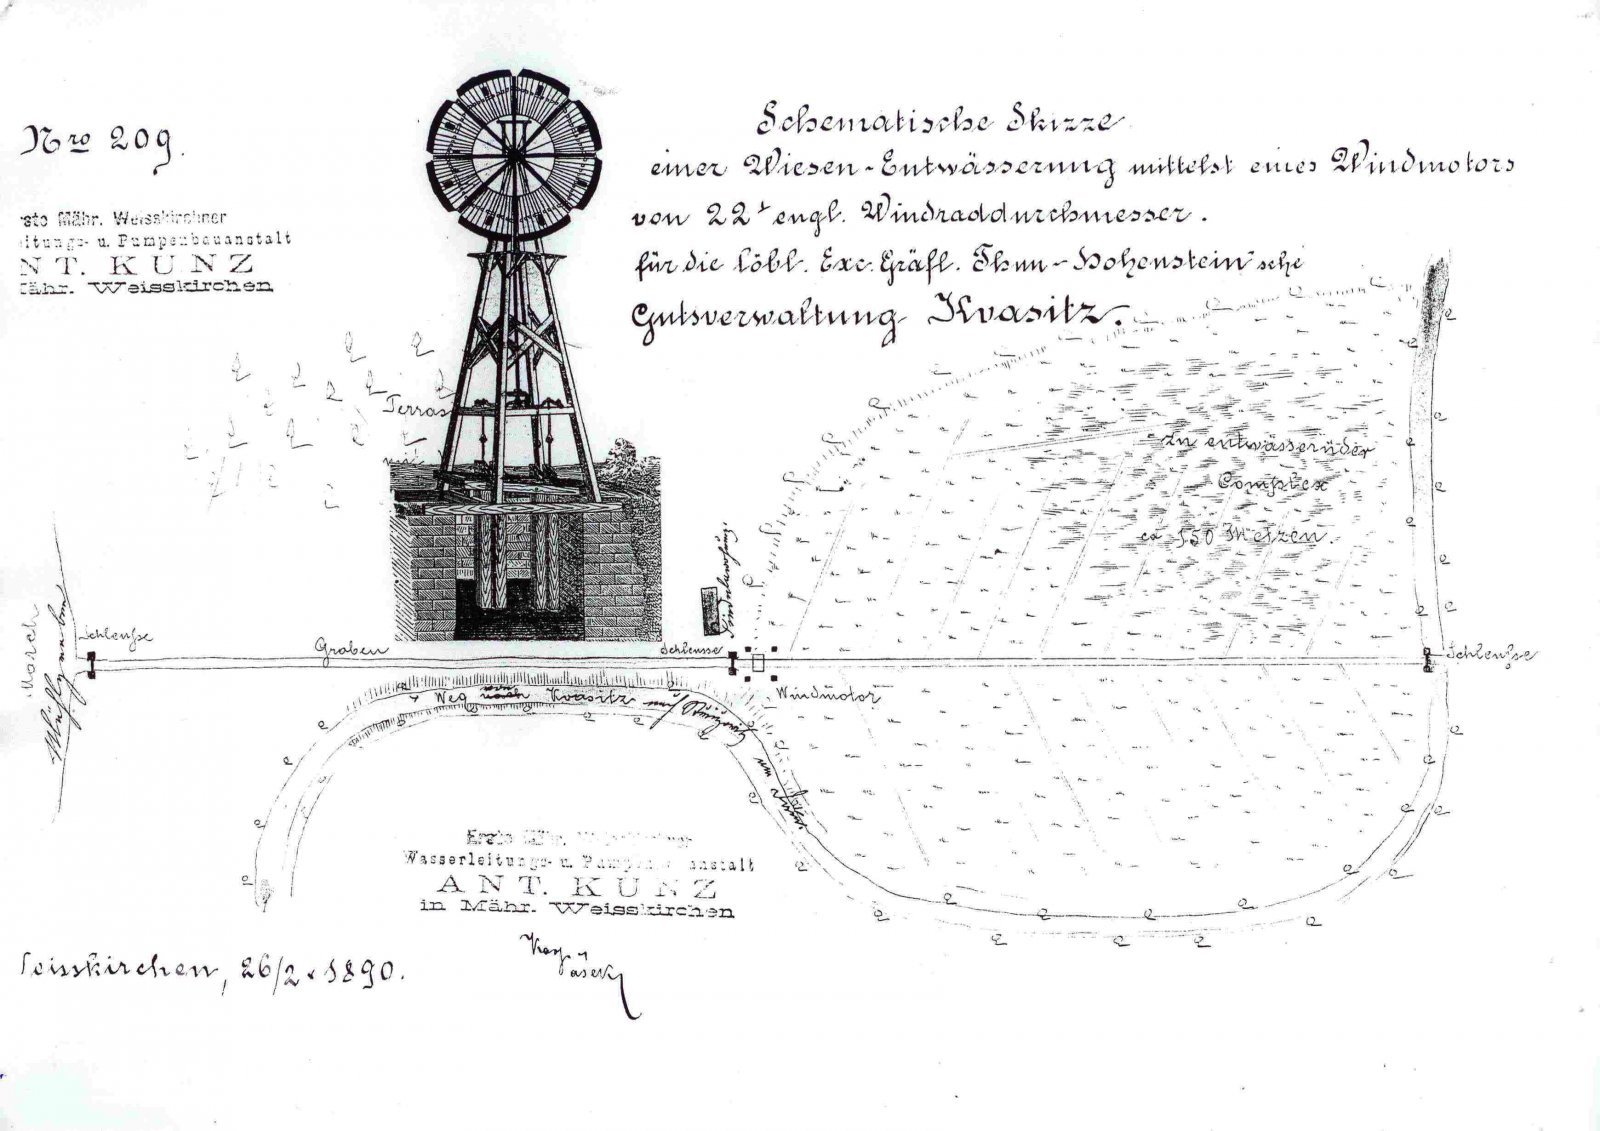 Nro 209.
Schematische Skizze
einer Wiesen-Entwässerung mittelst eines Windmotors
von 22' engl. Windraddurchmesser.
für die löbl. Exc. Gräfl. Thun-Hohenstein'sche
Gutsverwaltung Kvasitz.
rste Mähr. Weisskirchner
eitungs- u. Pumpenbauanstalt
NT. KUNZ
Mähr. Weisskirchen
Terras
Zu entwässernder
Complex
ca 150 Metzen.
March
Mühlgraben
Schleuße
Graben
Schleusse
Schleuße
Windmotor
Weg von Kvasitz
Erste Mähr. Weisskirchner
Wasserleitungs- u. Pumpenbauanstalt
ANT. KUNZ
in Mähr. Weisskirchen
eisskirchen, 26/2. 1890.